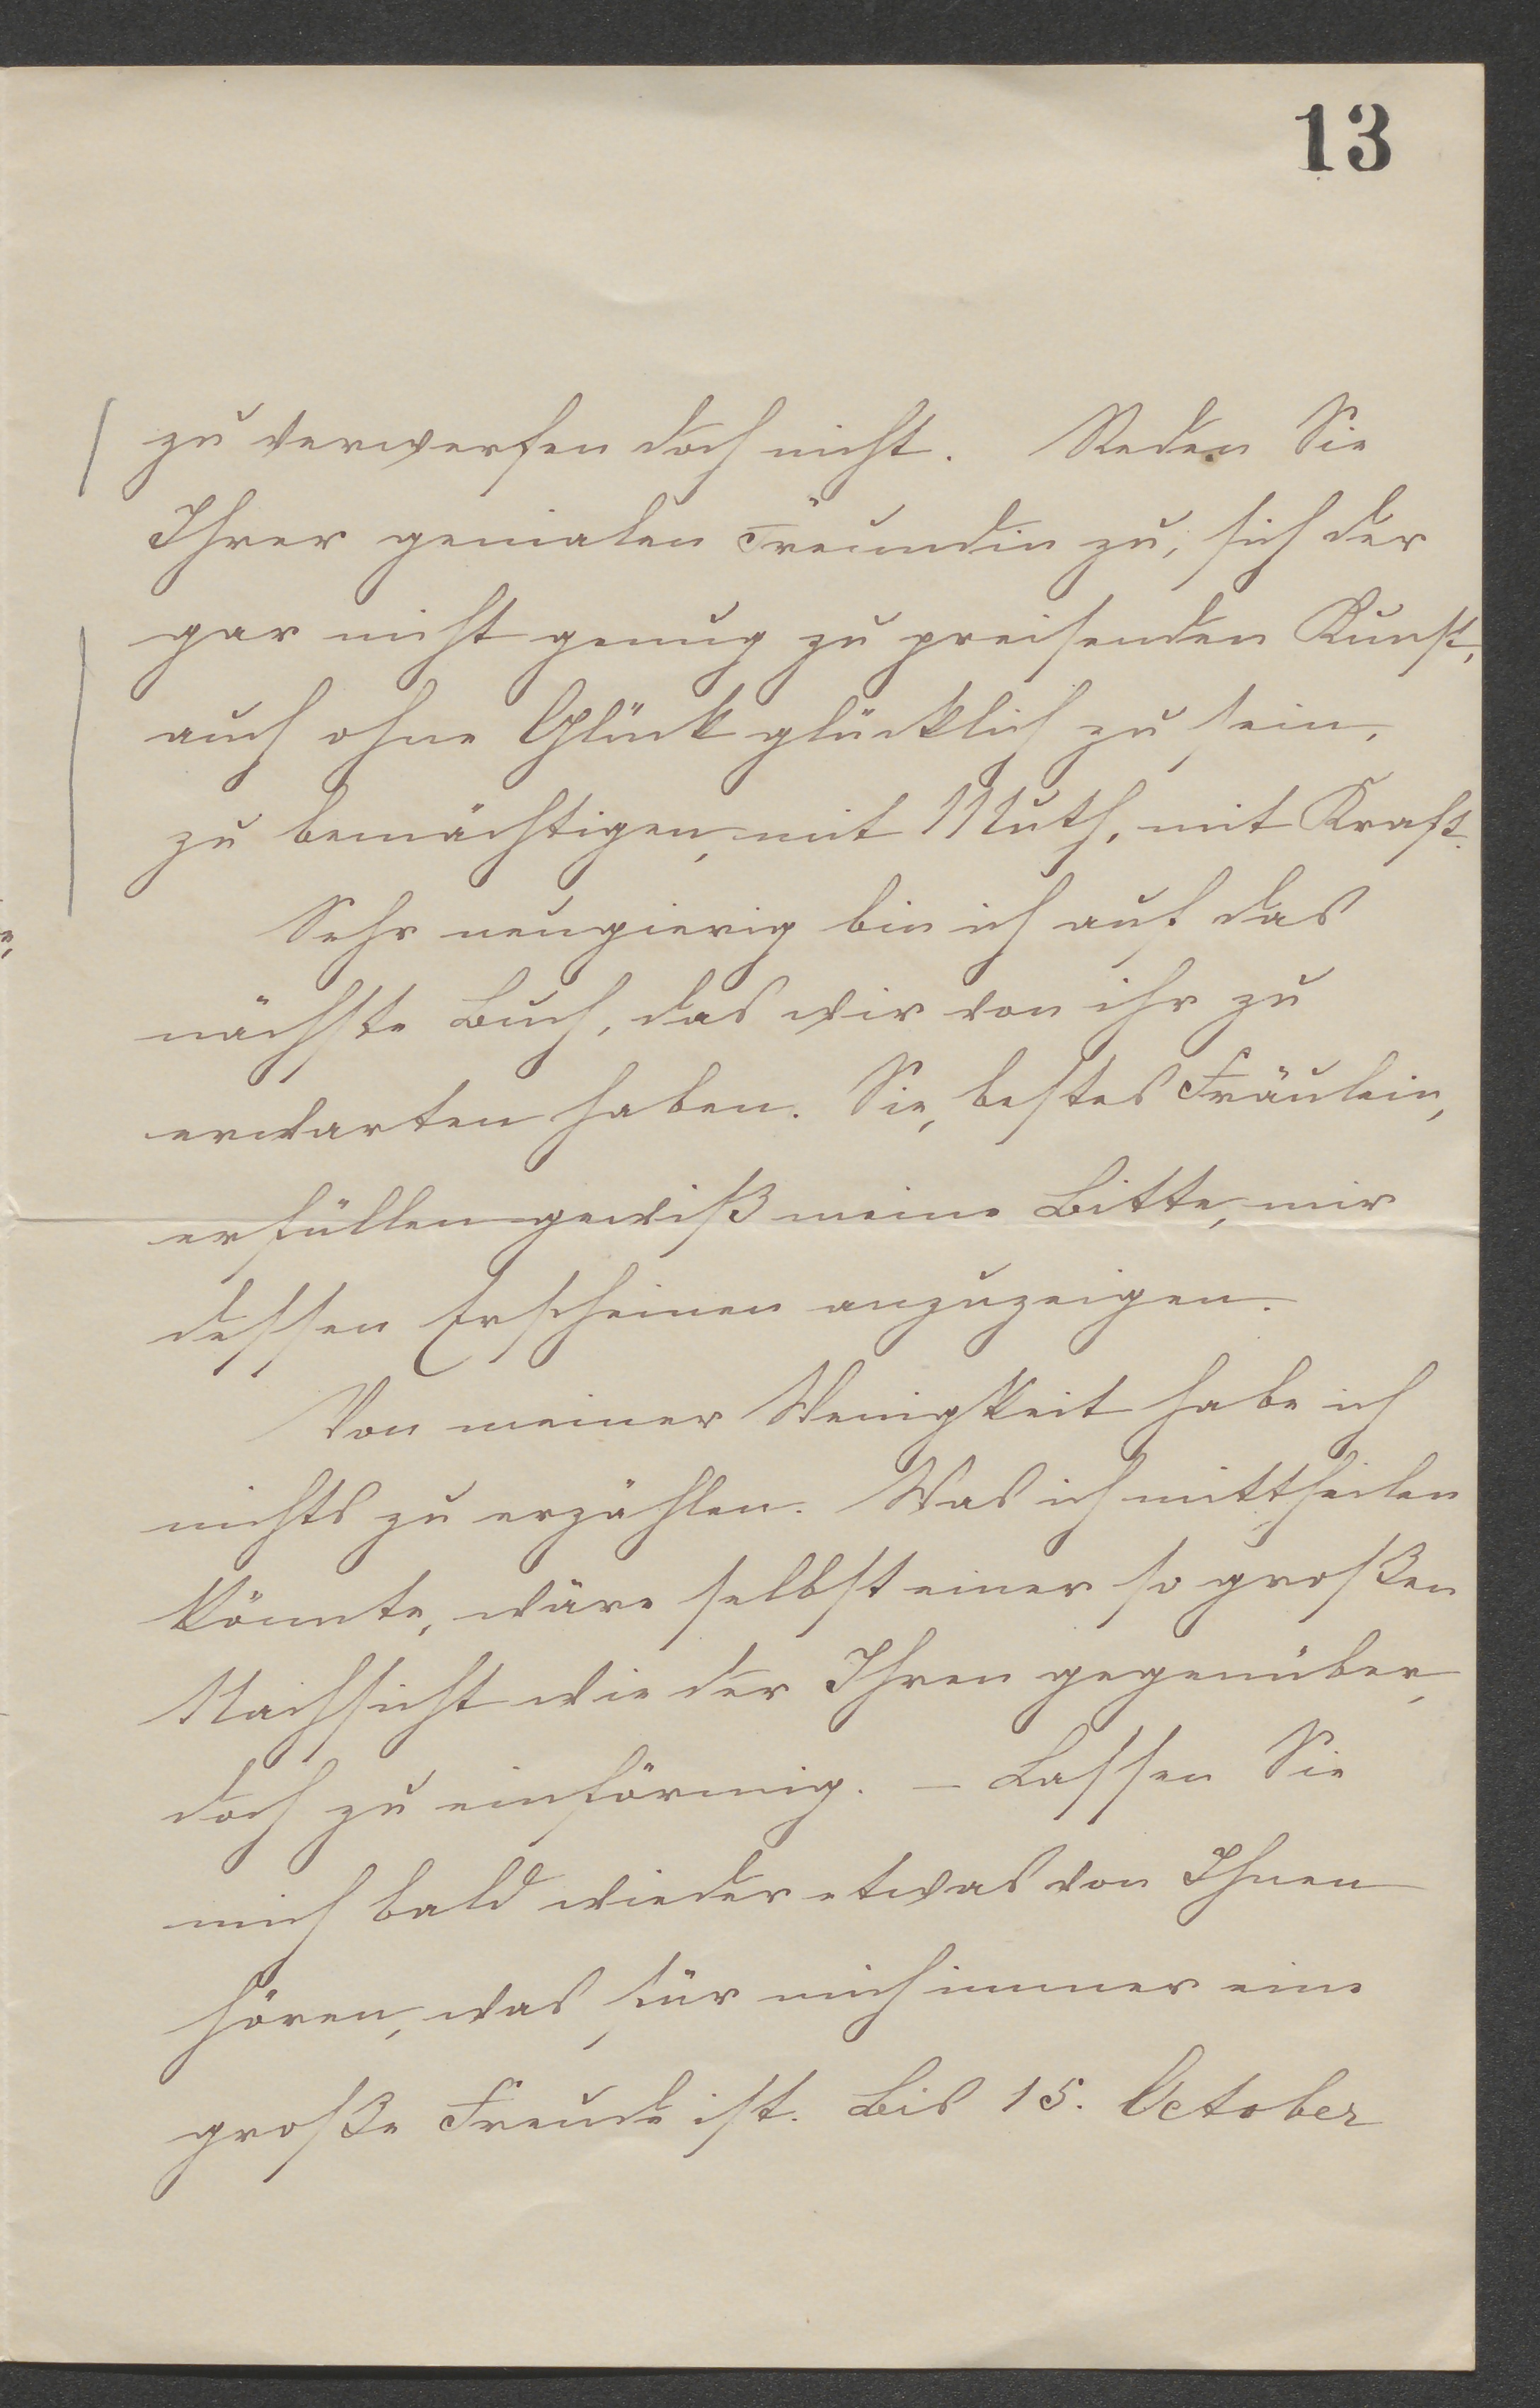 13
zu verwerfen doch nicht. Reden Sie
Ihrer genialen Freundin zu, sich der
gar nicht genug zu preisenden Kunst,
auch ohne Glück glücklich zu sein,
zu bemächtigen, mit Muth, mit Kraft.
Sehr neugierig bin ich auf das
nächste Buch, das wir von ihr zu
erwarten haben. Sie, bestes Fräulein,
erfüllen gewiß meine Bitte, mir
dessen Erscheinen anzuzeigen.
Von meiner Wenigkeit habe ich
nichts zu erzählen. Was ich mittheilen
könnte, wäre selbst einer so großen
Nachsicht wie der Ihren gegenüber,
doch zu einförmig. – Lassen Sie
mich bald wieder etwas von Ihnen
hören, was für mich immer eine
große Freude ist. Bis 15. October